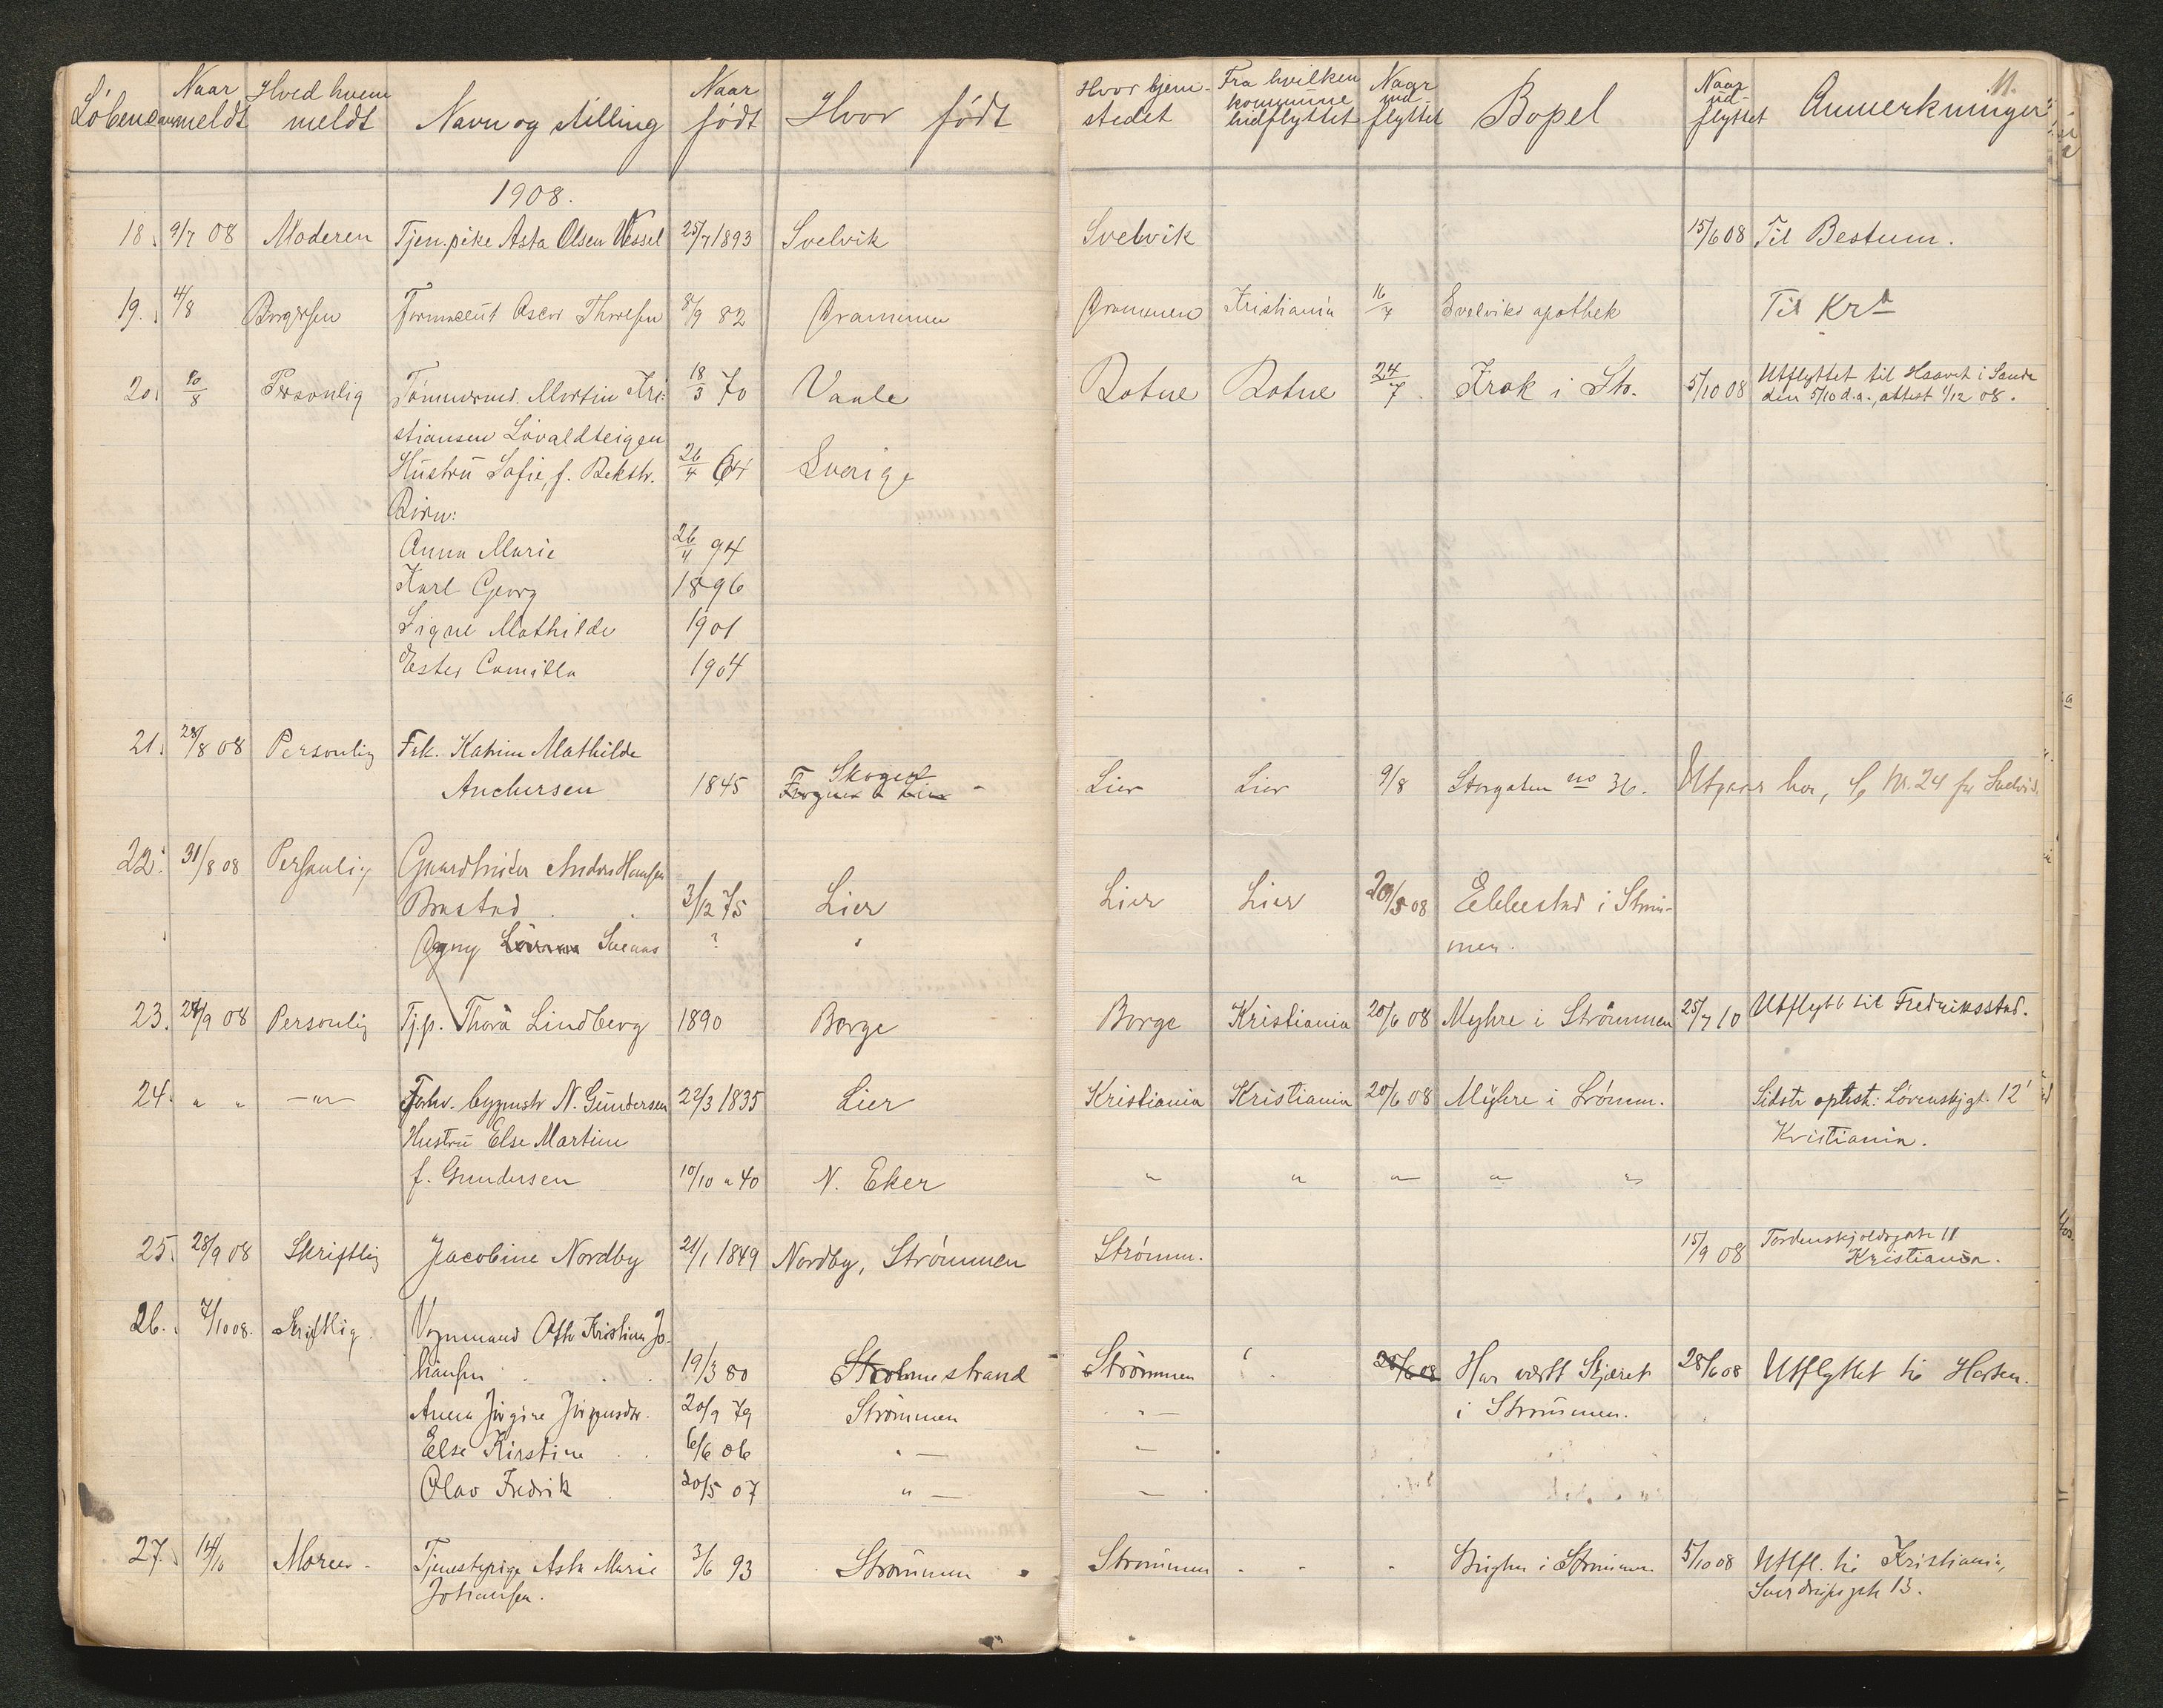 11.
Löbenr. Naar meldt Hved hvem meldt Navn og stilling Naar födt Hvor födt Hvor hjemstedet Fra hvilken kommune indflyttet Naar indflyttet Bopel Naar udflyttet Anmerkninger
1908.
18. 9/7 08 Moderen Tjen.pike Asta Olsen Wessel 25/7 1893 Svelvik Svelvik 15/6 08 Til Bestum.
19. 4/8 Borgersen Farmaceut Oscar Thoresen 8/9 82 Drammen Drammen Kristiania 16/7 Svelviks apothek Til Kra
20. 20/8 Personlig Tömmermd. Martin Kri- 18/3 70 Vaale Botne Botne 24/7 Krok i Str. 5/10 08 Utflyttet til Haavet i Sande
den 5/10 d.a., attest 1/12 08.
stiansen Lövaldteigen
Hustru Sofie, f. Bekstr. 26/4 64 Sverige
Börn:
Anna Marie 26/11 94
Karl Georg 1896
Signe Mathilde 1901
Ester Camilla 1904
21. 28/8 08 Personlig Frk. Katrine Mathilde
Andersen 1845 Skoger Lier Lier 9/8 Storgaten no 36. Utgaar her, No. 24 for Svelvik.
22. 31/8 08 Personlig Gaardbruker Anders Hansen
Brastad 3/12 75 Lier Lier Lier 20/5 08 Ebbestad i Ström-
men.
Agny Sveaas ?
23. 24/9 08 Personlig Tj.p. Thora Lindberg 1890 Borge Borge Kristiania 20/6 08 Myhre i Strömmen 25/7 10 Utflytt til Fredriksstad.
24. " " — " — Forhv. bygmstr N. Gundersen 22/3 1835 Lier Kristiania Kristiania 20/6 08 Myhre i Strömm. Sidste opkst.: Lövenskjgt. 12
Kristiania.
Hustru Else Martine
f. Gundersen 10/10 " 40 N. Eker " " " " "
25. 28/9 08 Skriftlig Jacobine Nordby 21/1 1849 Nordby, Strömmen Strömm. 15/9 08 Tordenskjoldsgate 11
Kristiania.
26. 7/10 08. Skriftlig. Vognmand Otto Kristian Jo-
hansen 19/3 80 Holmestrand Strömmen 28/6 08 Har været Skjæret 28/6 08 Utflyttet til Horten.
Anna Jörgine Jörgensdtr. 20/9 79 Strömmen " — i Strömmen.
Else Kirstine 6/6 06 " — " —
Olav Fredrik 20/5 07 " — —
27. 14/10 Moren Tjenestepige Asta Marie 3/6 93 Strömmen Strömmen i Strömmen 5/10 08 Utfl. til Kristiania,
Johansen. Sverdrupsgate 13.